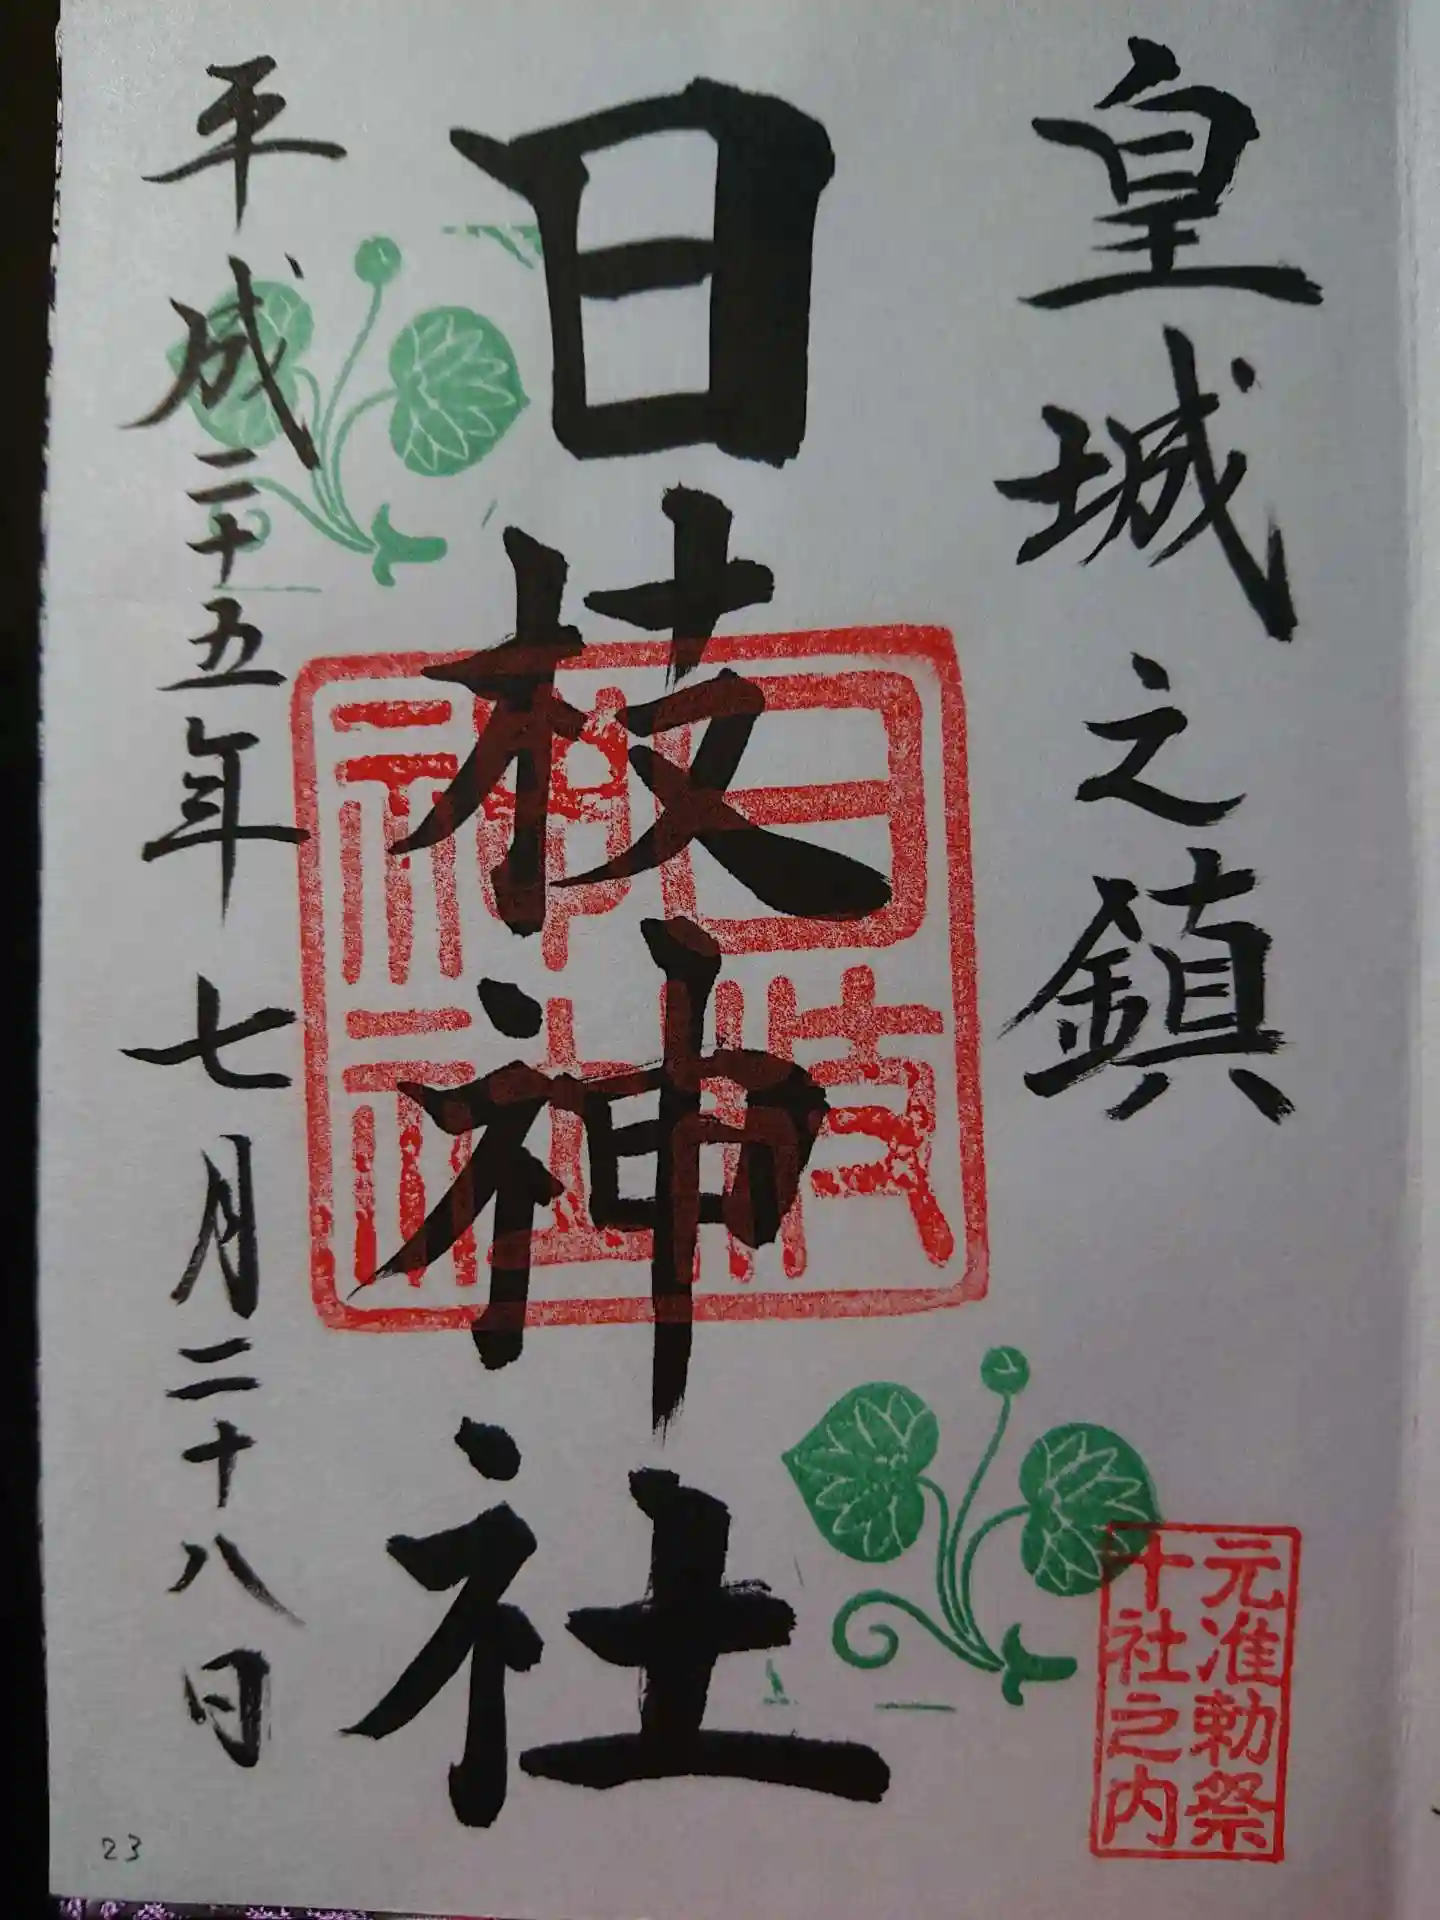 皇城之鎮
元准勅祭
十社之内
日枝神社
日枝
神社
平成二十五年七月二十八日
23